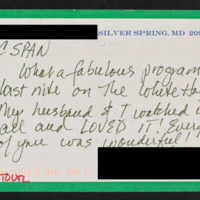 SILVER SPRING, MD 209
C SPAN
What a fabulous program
last nite on The White Ho
My husband & I watched i
all and LOVED IT! Every
of you was wonderful!
TOUR